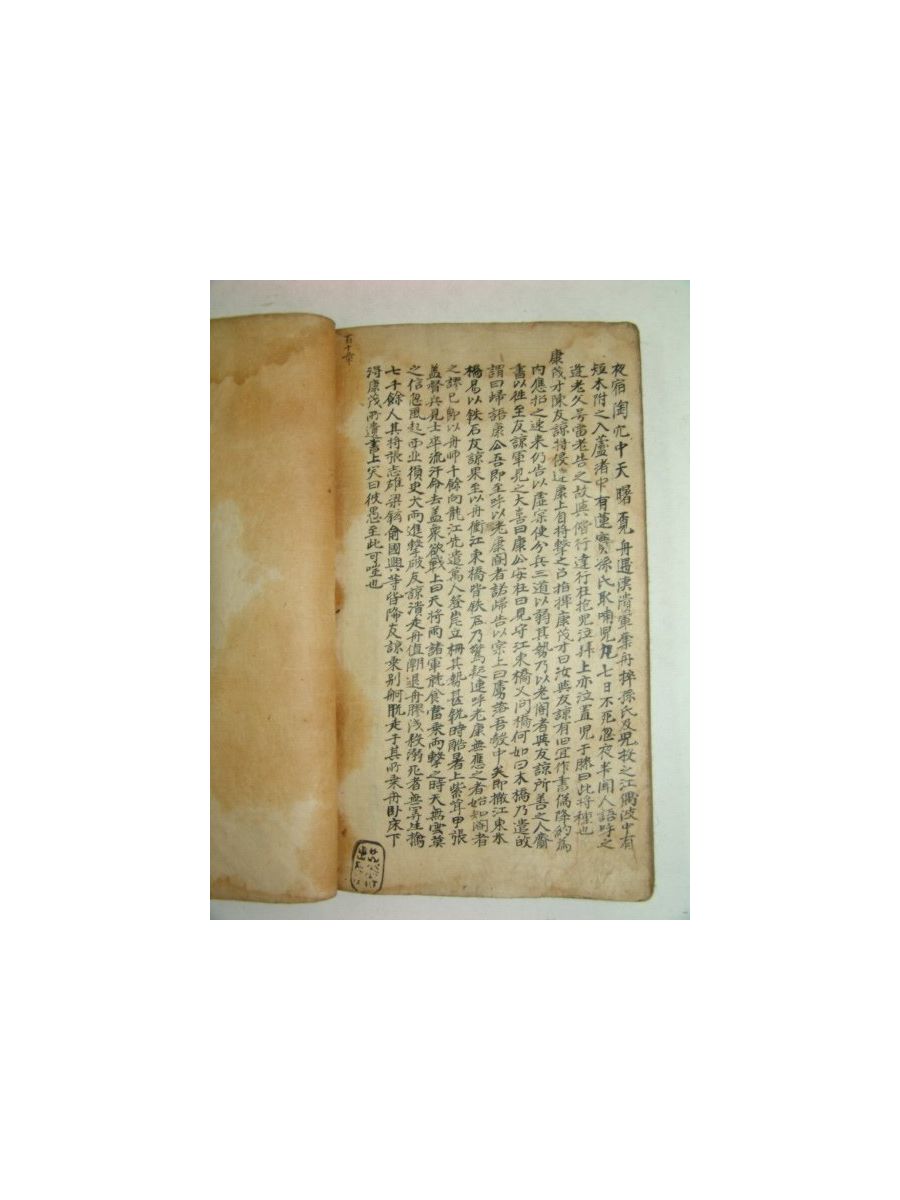 夜宿陶穴中天曙覓舟遇漢潰軍棄舟摔孫氏及児投之江偶波中有
短木附之入蘆渚中有蓮實孫氏取哺児凡七日不死忽夜半聞人語呼之
逢老父号雷老告之故與偕行達行在抱児泣拜上亦泣置児于膝曰此将種也
康茂才陳友諒将侵近康上自将擊之召指揮康茂才曰汝與友諒有旧宜作書偽降約為
内應招之速来仍告以虚宗使分兵三道以弱其勢乃以老閽者與友諒所善之人齎
書以往至友諒軍見之大喜曰康公安在曰見守江東橋又问橋何如曰木橋乃遣的
謂曰歸語康公吾即至呼以老康閽者諾歸告以宗上曰虜落吾彀中矣即撤江東木
橋易以铁石友諒果至以舟衝江東橋皆铁石乃驚起連呼老康無應之者始知閽者
之謬已即以舟师千餘向龍江先遣萬人登岸立柵其勢甚銳時酷暑上紫茸甲張
盖督兵見士卒流汗命去盖衆欲戰上曰天将雨諸軍就食當乘雨擊之時天無雲莫
之信忽風起西北須臾大雨進擊敗友諒潰走舟值潮退舟膠浅殺溺死者無筭生擒
七千餘人其将張志雄梁鉉俞國興等皆降友諒乘别舸脱走于其所乘舟卧床下
得康茂所遺書上笑曰彼愚至此可嗤也